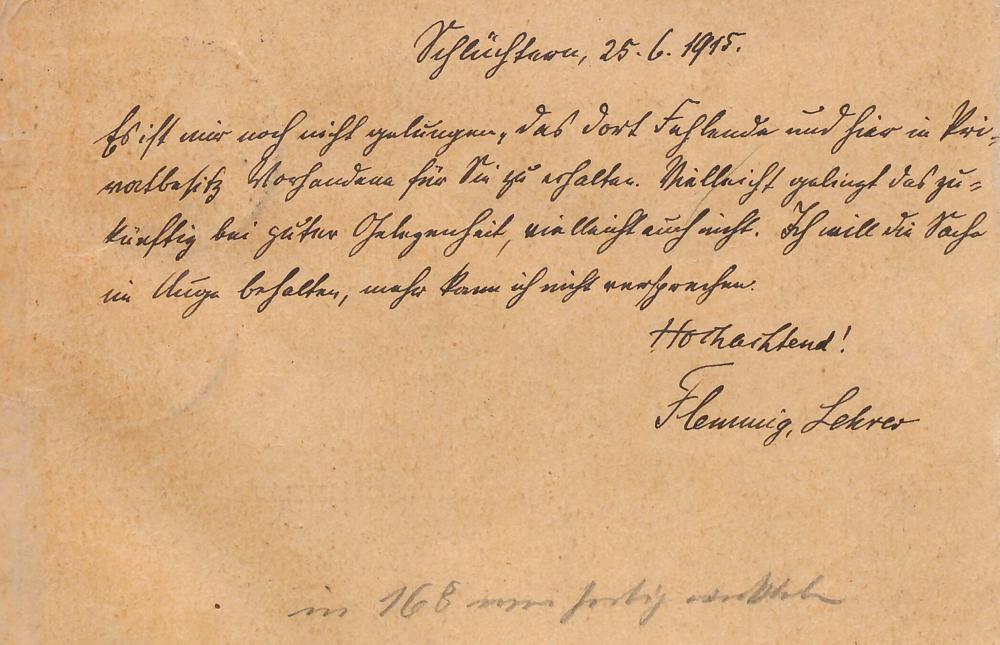 Schlüchtern, 25. 6. 1915.
Es ist mir noch nicht gelungen, das dort Fehlende und hier in Pri-
vatbesitz Vorhandene für Sie zu erhalten. Vielleicht gelingt das zu-
künftig bei guter Gelegenheit, vielleicht auch nicht. Ich will die Sache
im Auge behalten, mehr kann ich nicht versprechen.
Hochachtend!
Flemmig, Lehrer
in 168